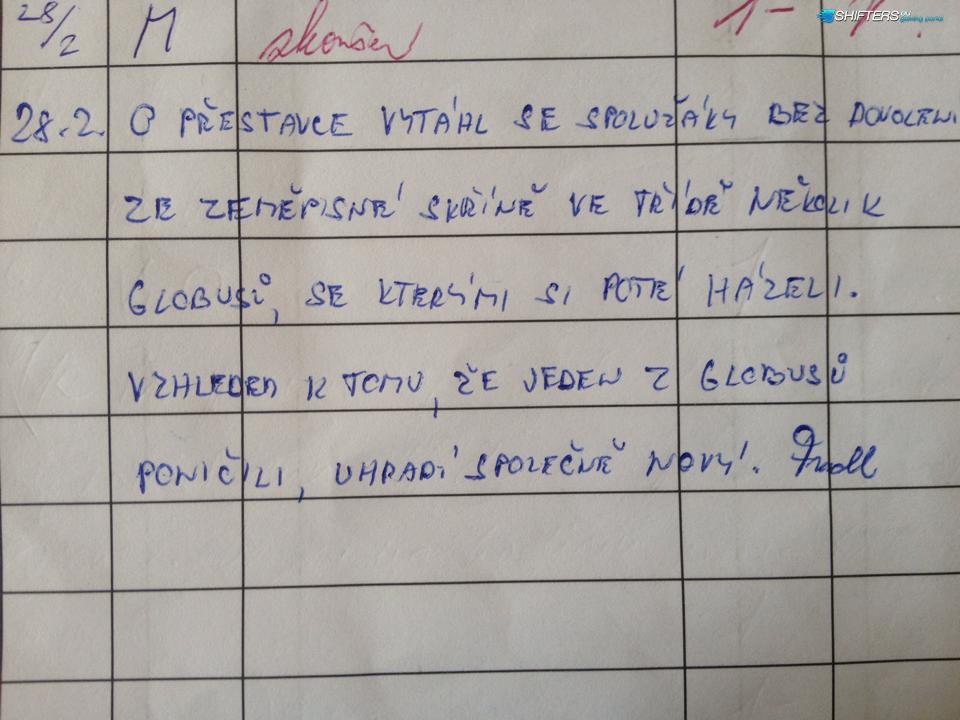 28/2 M zkoušen 1-
SHIFTERS.EU gaming portal
28.2. O PŘESTAVCE VYTÁHL SE SPOLUŽÁKY BEZ DOVOLENI
ZE ZEMĚPISNÉ SKŘÍNĚ VE TŘÍDĚ NĚKOLIK
GLOBUSŮ, SE KTERÝMI SI POTÉ HÁZELI.
VZHLEDEM K TOMU, ŽE JEDEN Z GLOBUSŮ
PONIČILI, UHRADÍ SPOLEČNĚ NOVÝ.